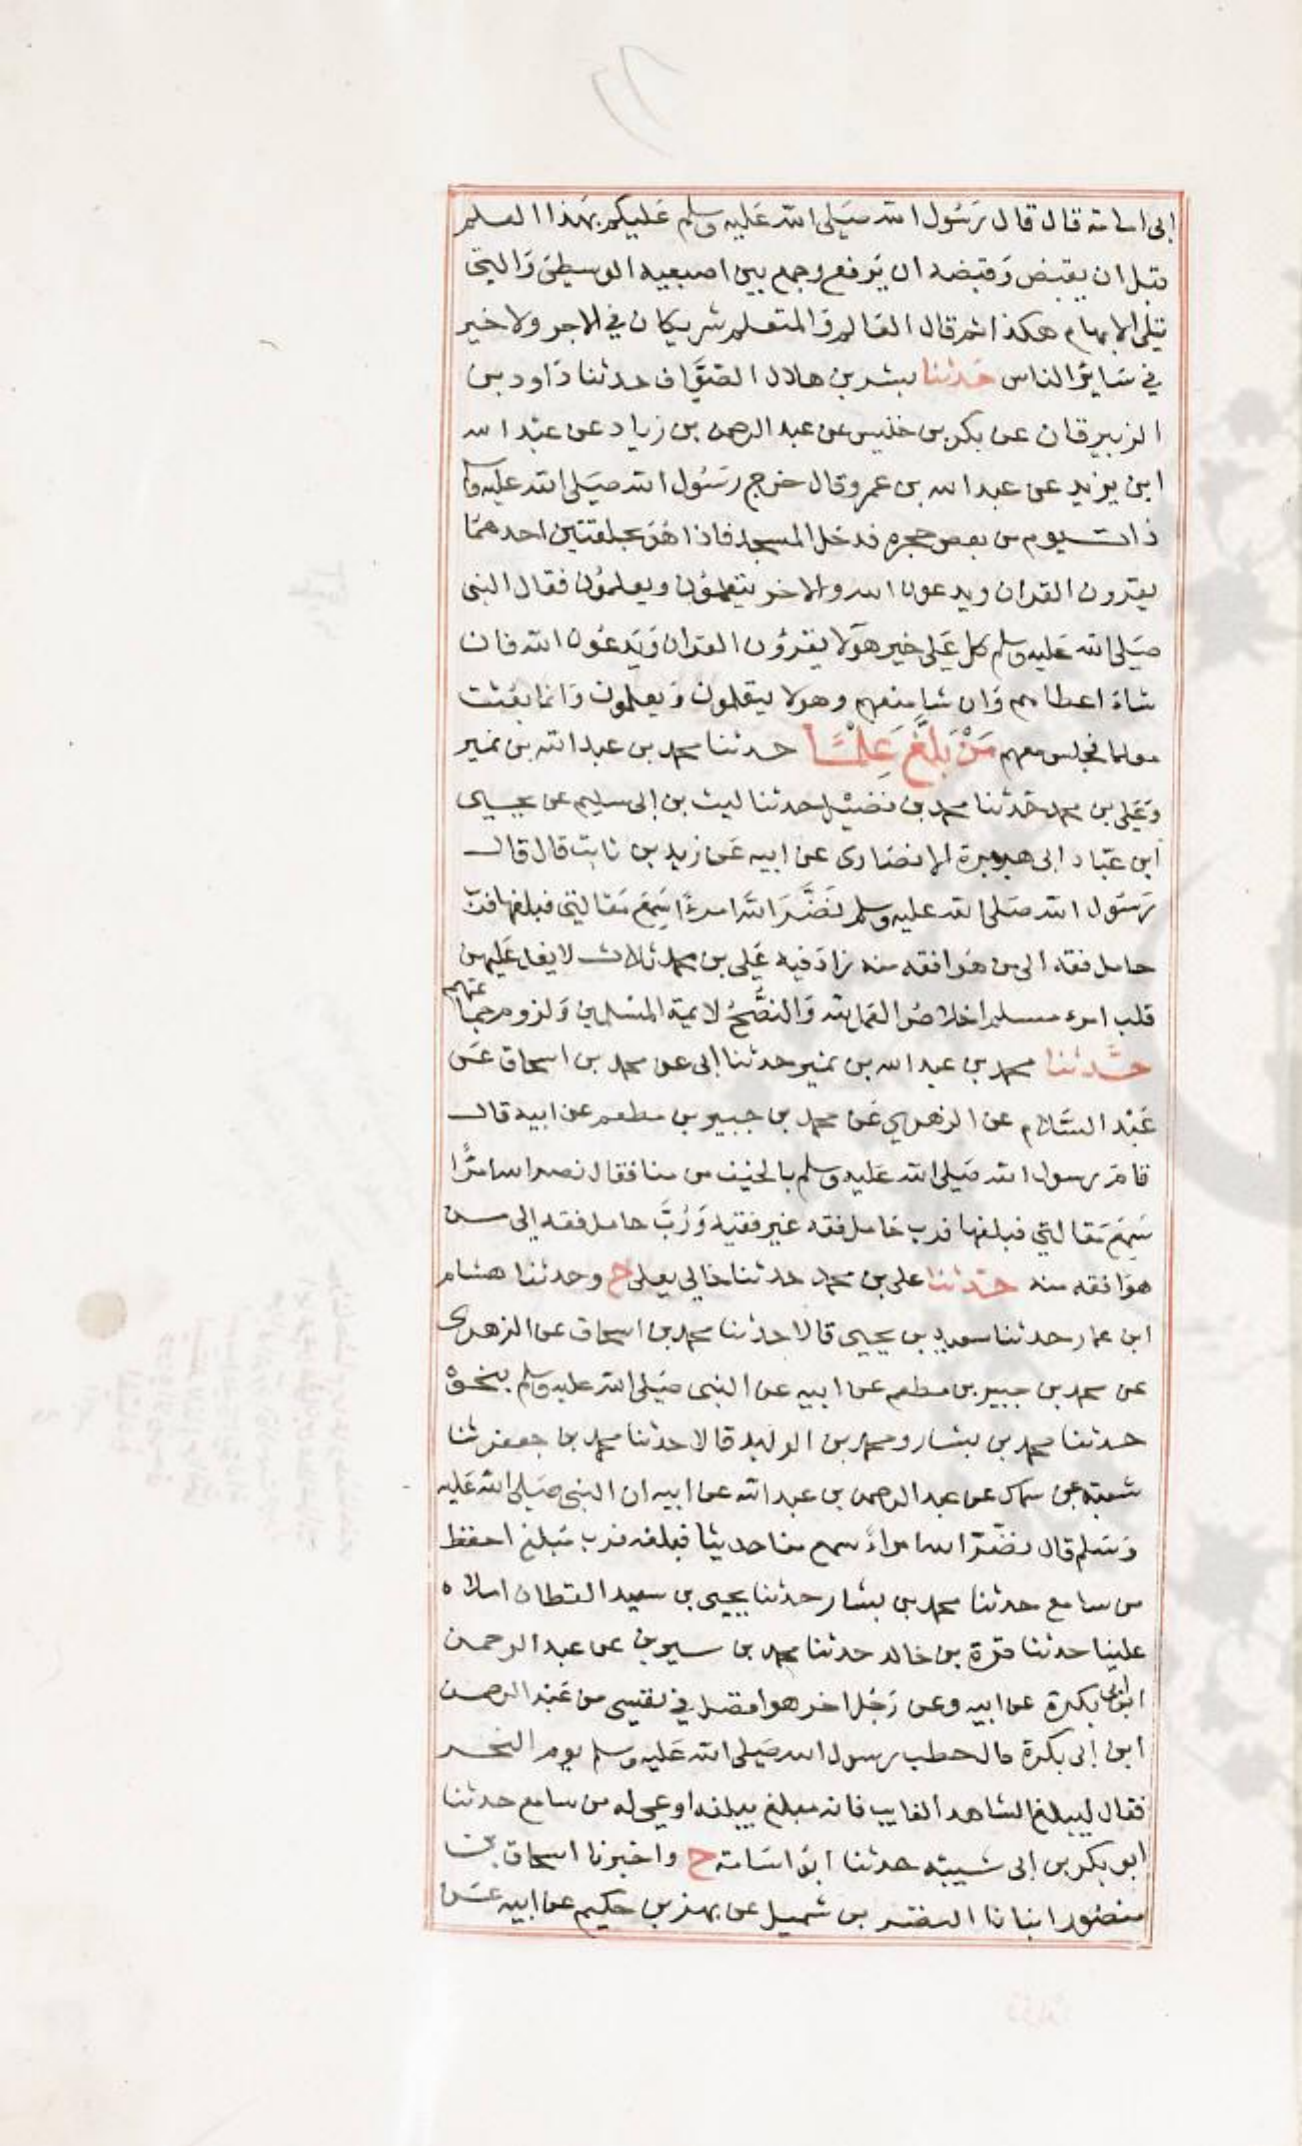 ابى اسامة قال قال رسول الله صلى الله عليه وسلم عليكم بهذا العلم
قبل ان يقبض وقبضه ان يرفع وجمع بين اصبعيه الوسطى والتي
تلى الابهام هكذا ثم قال العالم والمتعلم شريكان في الاجر ولا خير
في سائر الناس حدثنا بشر بن هلال الصواف حدثنا داود بن
الزبرقان عن بكر بن خنيس عن عبد الرحمن بن زياد عن عبد الله
ابن يزيد عن عبد الله بن عمرو قال خرج رسول الله صلى الله عليه وسلم
ذات يوم من بعض حجره فدخل المسجد فاذا هو بحلقتين احدهما
يقرون القران ويدعون الله والاخر يتعلمون ويعلمون فقال النبى
صلى الله عليه وسلم كل على خير هولا يقرؤن القران ويدعون الله فان
شاء اعطاهم وان شا منعهم وهولا يتعلمون ويعلمون وانما بعثت
معلما فجلس معهم مَنْ بَلَّغَ عِلْمًا حدثنا محمد بن عبد الله بن نمير
وعلى بن محمد حدثنا محمد بن فضيل حدثنا ليث بن ابى سليم عن يحيى
ابن عباد ابى هبيرة الانصارى عن ابيه عن زيد بن ثابت قال قال
رسول الله صلى الله عليه وسلم نَضَّرَ الله امرءًا سمع مقالتي فبلغها فرب
حامل فقه الى من هو افقه منه زاد فيه على بن محمد ثلاث لا يغل عليهن
قلب امرء مسلم اخلاص العمل لله والنصح لايمة المسلمين ولزوم جماعتهم
حدثنا محمد بن عبد الله بن نمير حدثنا ابى عن محمد بن اسحاق عن
عبد السلام عن الزهري عن محمد بن جبير بن مطعم عن ابيه قال
قام رسول الله صلى الله عليه وسلم بالخيف من منا فقال نصر الله امرًا
سمع مقالتي فبلغها فرب حامل فقه غير فقيه ورُبَّ حامل فقه الى من
هو افقه منه حدثنا على بن محمد حدثنا خالي يعلى ح وحدثنا هشام
ابن عمار حدثنا سعيد بن يحيى قالا حدثنا محمد بن اسحاق عن الزهرى
عن محمد بن جبير بن مطعم عن ابيه عن النبى صلى الله عليه وسلم بنحوه
حدثنا محمد بن بشار ومحمد بن الوليد قالا حدثنا محمد بن جعفر ثنا
شعبة عن سماك عن عبد الرحمن بن عبد الله عن ابيه ان النبى صلى الله عليه
وسلم قال نضّر الله امراءً سمع منا حديثا فبلغه فرب مبلغ احفظ
من سامع حدثنا محمد بن بشار حدثنا يحيى بن سعيد القطان املاه
علينا حدثنا قرة بن خالد حدثنا محمد بن سيرين عن عبد الرحمن
ابن ابى بكرة عن ابيه وعن رجل اخر هو افضل في نفسى من عبد الرحمن
ابن ابى بكرة قال خطب رسول الله صلى الله عليه وسلم يوم النحر
فقال ليبلغ الشاهد الغايب فانه مبلغ يبلغه اوعى له من سامع حدثنا
ابو بكر بن ابى شيبة حدثنا ابو اسامة ح واخبرنا اسحاق بن
منصور انبانا النضر بن شميل عن بهز بن حكيم عن ابيه عن